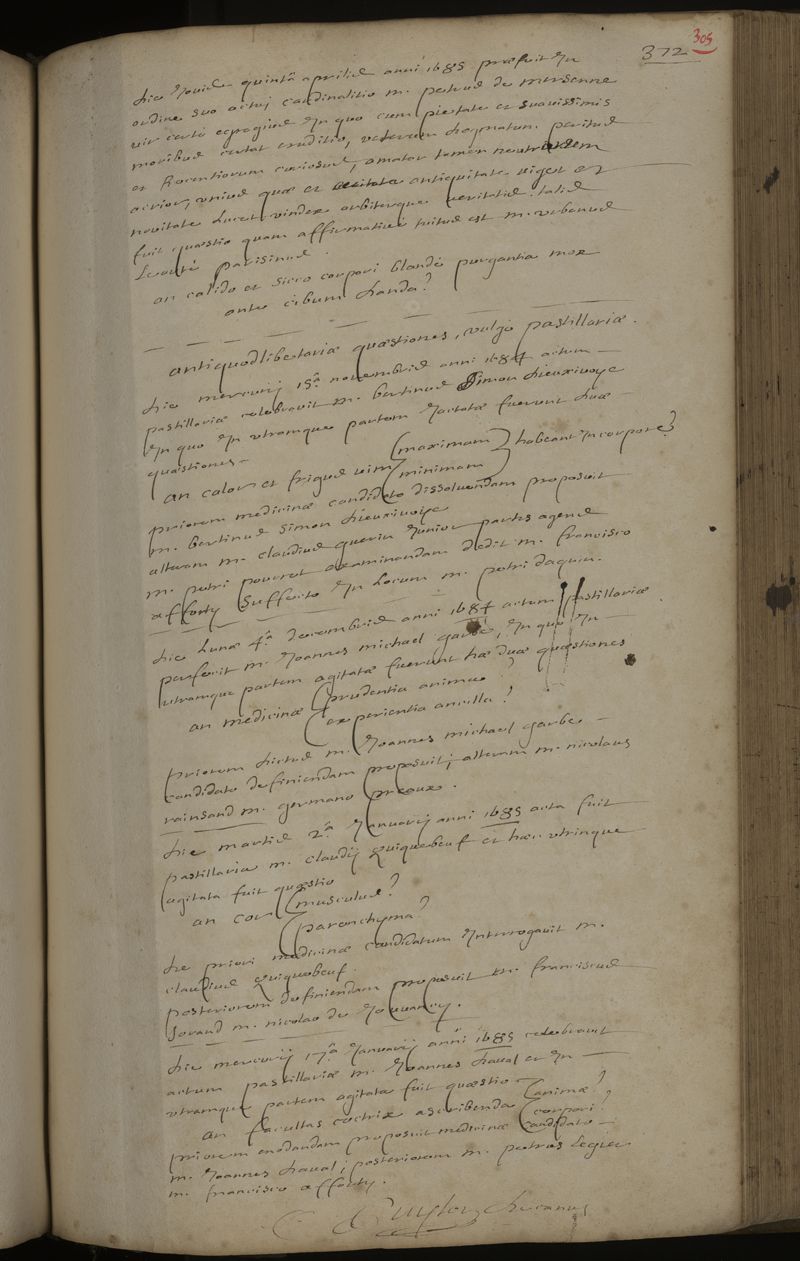 305
372
die Jovis quintâ aprilis anni 1685 præfuit In
ordine suo actuj cardinalitio m. petrus de mersenne
vir certè egregius In quo cum pietate et suavissimis
moribus certat eruditio, veterum dogmatum peritus
et Recentiorum curiosus, amator tamen neutrorum
acrior, unius quæ et antiquitate viget et
novitate lucet vindex arbiterque veritatis. talis
fuit quæstio quam affirmativè tuitus est m. urbanus
Leaulté parisinus.
an calido et sicco corpori blandè purgantia mox
ante cibum danda?
antiquodlibetariæ quæstiones, vulgò pastillariæ.
die mercurij 15.ª novembris anni 1684 actum
pastillariæ celebravit m. bertinus Simon dieuxivoye
In quo In utramque partem Jactatæ fuerunt duæ
quæstiones
an calor et frigus vim (maximam) habeant In corpore?
(minimam)
priorem medicinæ candidato dissolvendam proposuit
m. bertinus Simon dieuxivoye
alteram m. claudius guerin Junior partes agens
m. petri pourret examinandam dedit m. francisco
afforty suffecto In Locum m. petri daquin.
die Lunæ 4.ª decembris anni 1684 actum pastillariæ
perfecit m. Joannes michael garbe, In quo In
utramque partem agitatæ fuerunt hæ duæ quæstiones
an medicinæ (prudentia animæ?
(experientia ancilla?
priorem dictus m. Joannes michael garbe
candidato definiendam proposuit; alteram m. nicolaus
rainsand m. germano preaux.
die martis 2.ª Januarij anni 1685 acta fuit
pastillaria m. claudij Quiquebeuf et hæc utrinque
agitata fuit quæstio
an cor (musculus?
(parenchyma?
de priori medicinæ candidatum Interrogavit m.
claudius Quiquebeuf.
posteriorem definiendam proposuit m. franciscus
Sorand m. nicolao de Jouvancy.
die mercurij 17.ª Januarij anni 1685 celebravit
actum pastillariæ m. Joannes daval et In
utramque partem agitata fuit quæstio
an facultas coctrix ascribenda (animæ?
(corpori?
priorem enodandam proposuit medicinæ candidato
m. Joannes daval; posteriorem m. petrus Legier
m. francisco afforty.
C. Puylon decanus